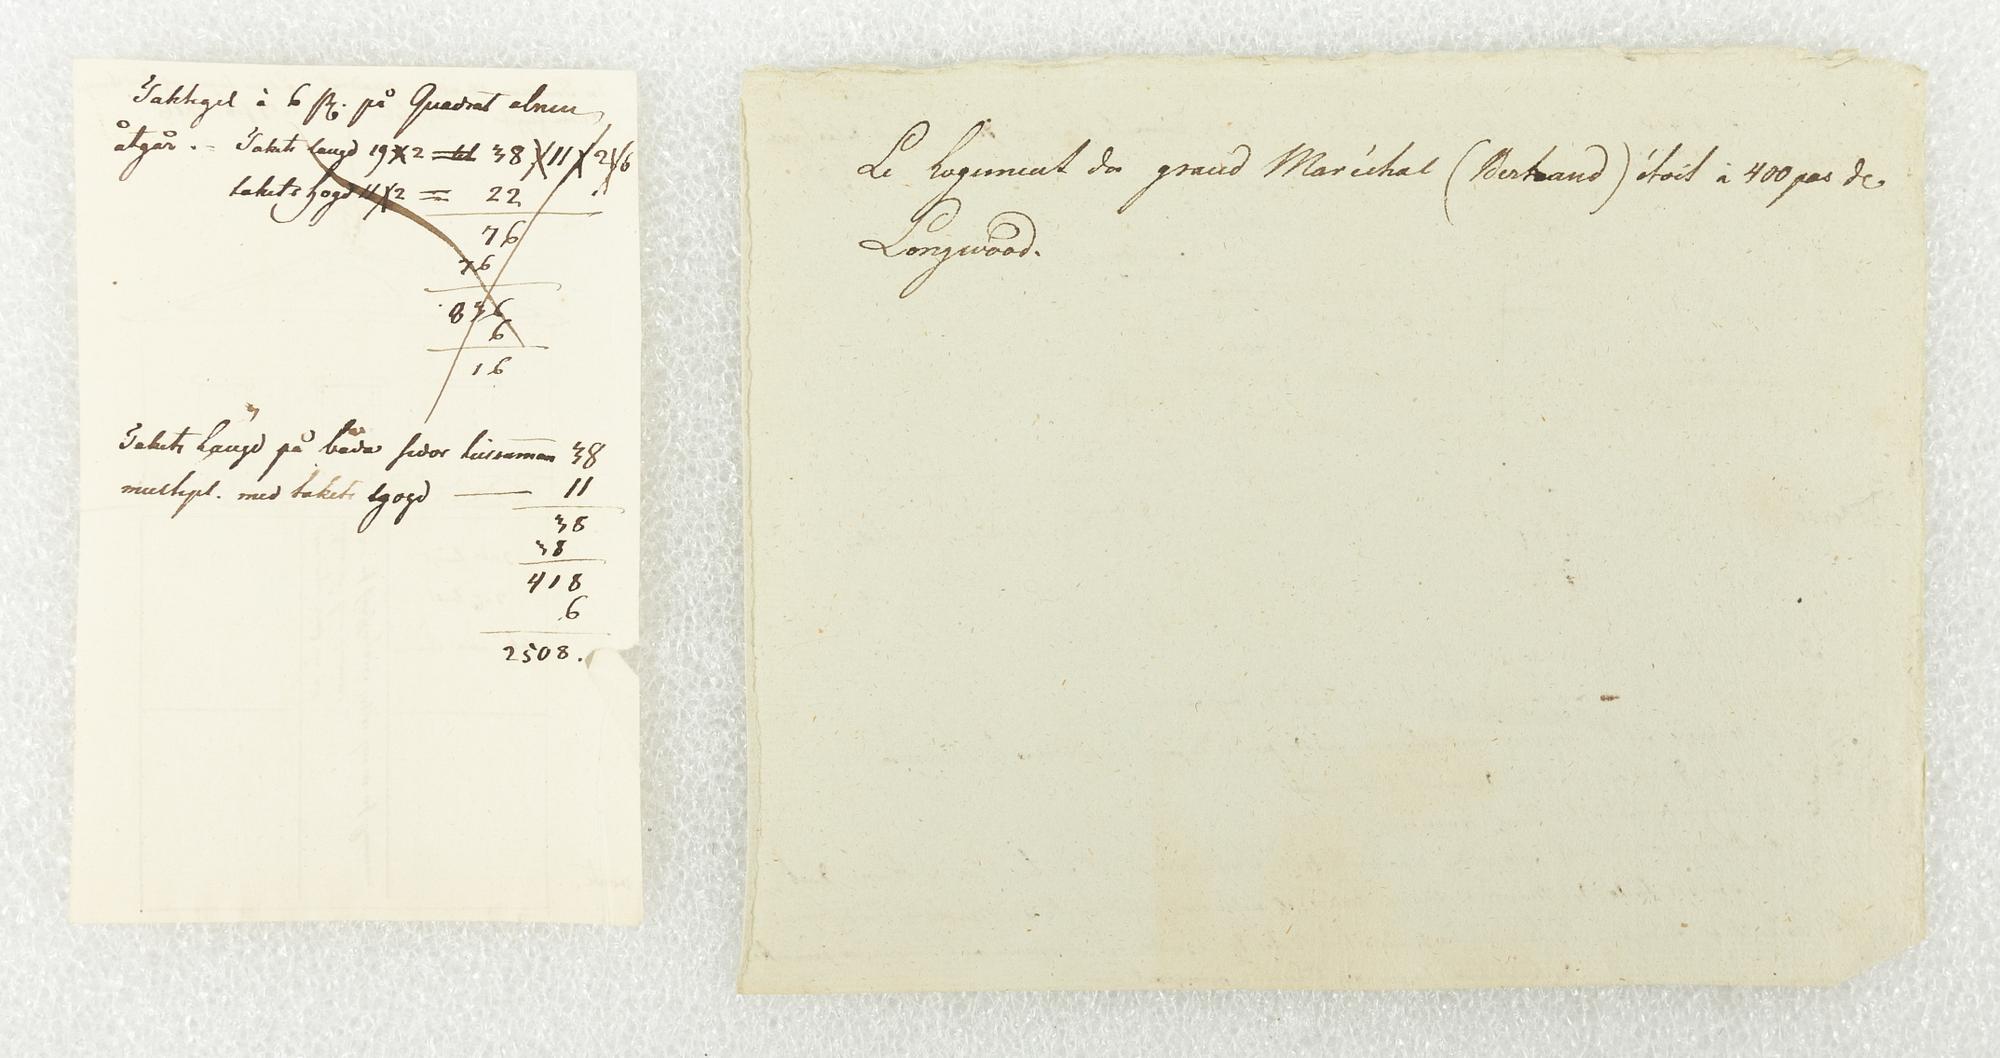 Taktegel à 6 st. på Quadrat alnen
åtgår. - Takets längd 19 X 2 = 38 X 11 X 2 X 6
takets högd 11 X 2 = 22
76
76
836
6
16
Takets längd på båda sidor tillsamman 38
multipl. med takets högd — 11
38
38
418
6
2508.
Le logement du grand Maréchal (Bertrand) étoit à 400 pas de
Longwood.